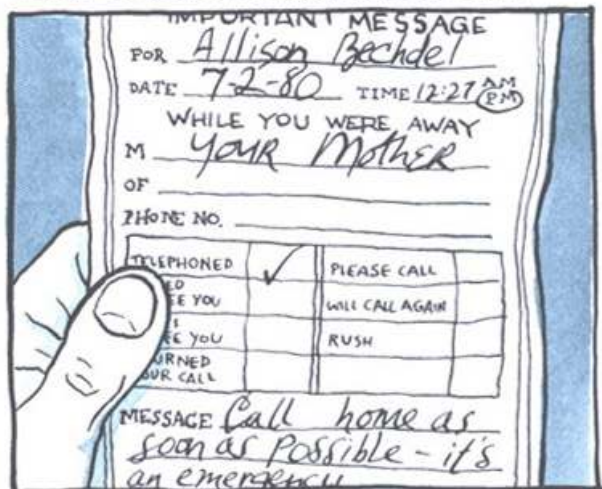 IMPORTANT MESSAGE
FOR Allison Bechdel
DATE 7-2-80 TIME 12:27 AM PM
WHILE YOU WERE AWAY
M YOUR MOTHER
OF
PHONE NO.
TELEPHONED ✓ PLEASE CALL
EE YOU WILL CALL AGAIN
EE YOU RUSH
URNED
UR CALL
MESSAGE Call home as
soon as possible - it's
an emergency